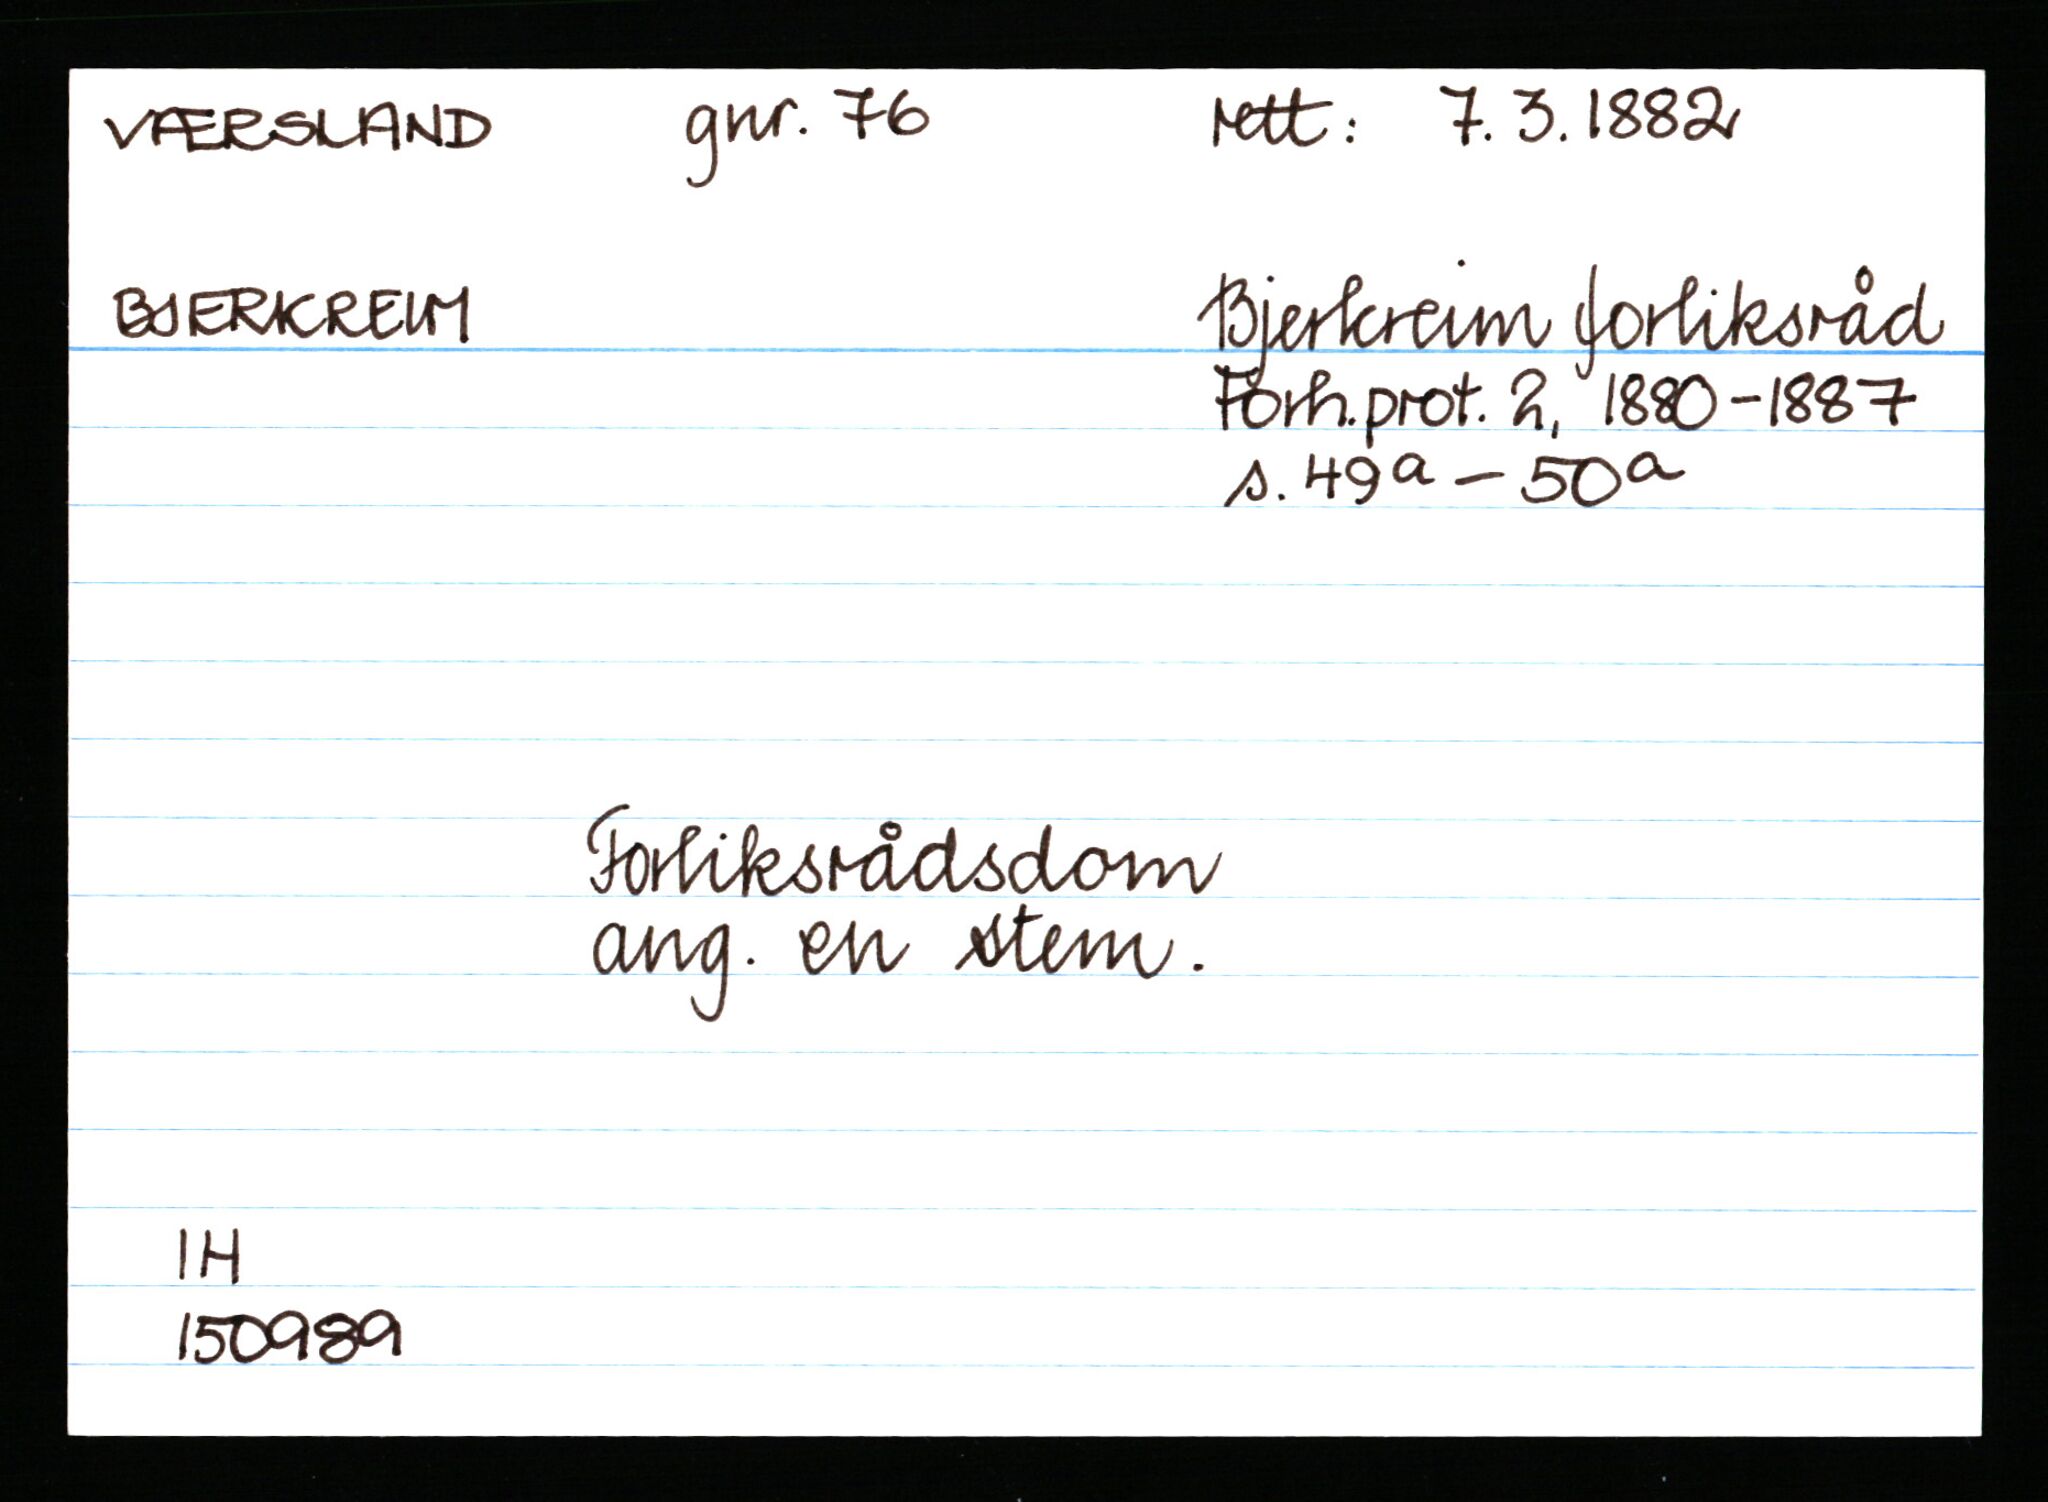 VÆRSLAND gnr. 76 rett: 7. 3. 1882
BJERKREIM Bjerkreim forliksråd
Forh.prot. 2, 1880-1887
s. 49a - 50a
Forliksrådsdom
ang. en stem.
IH
150989